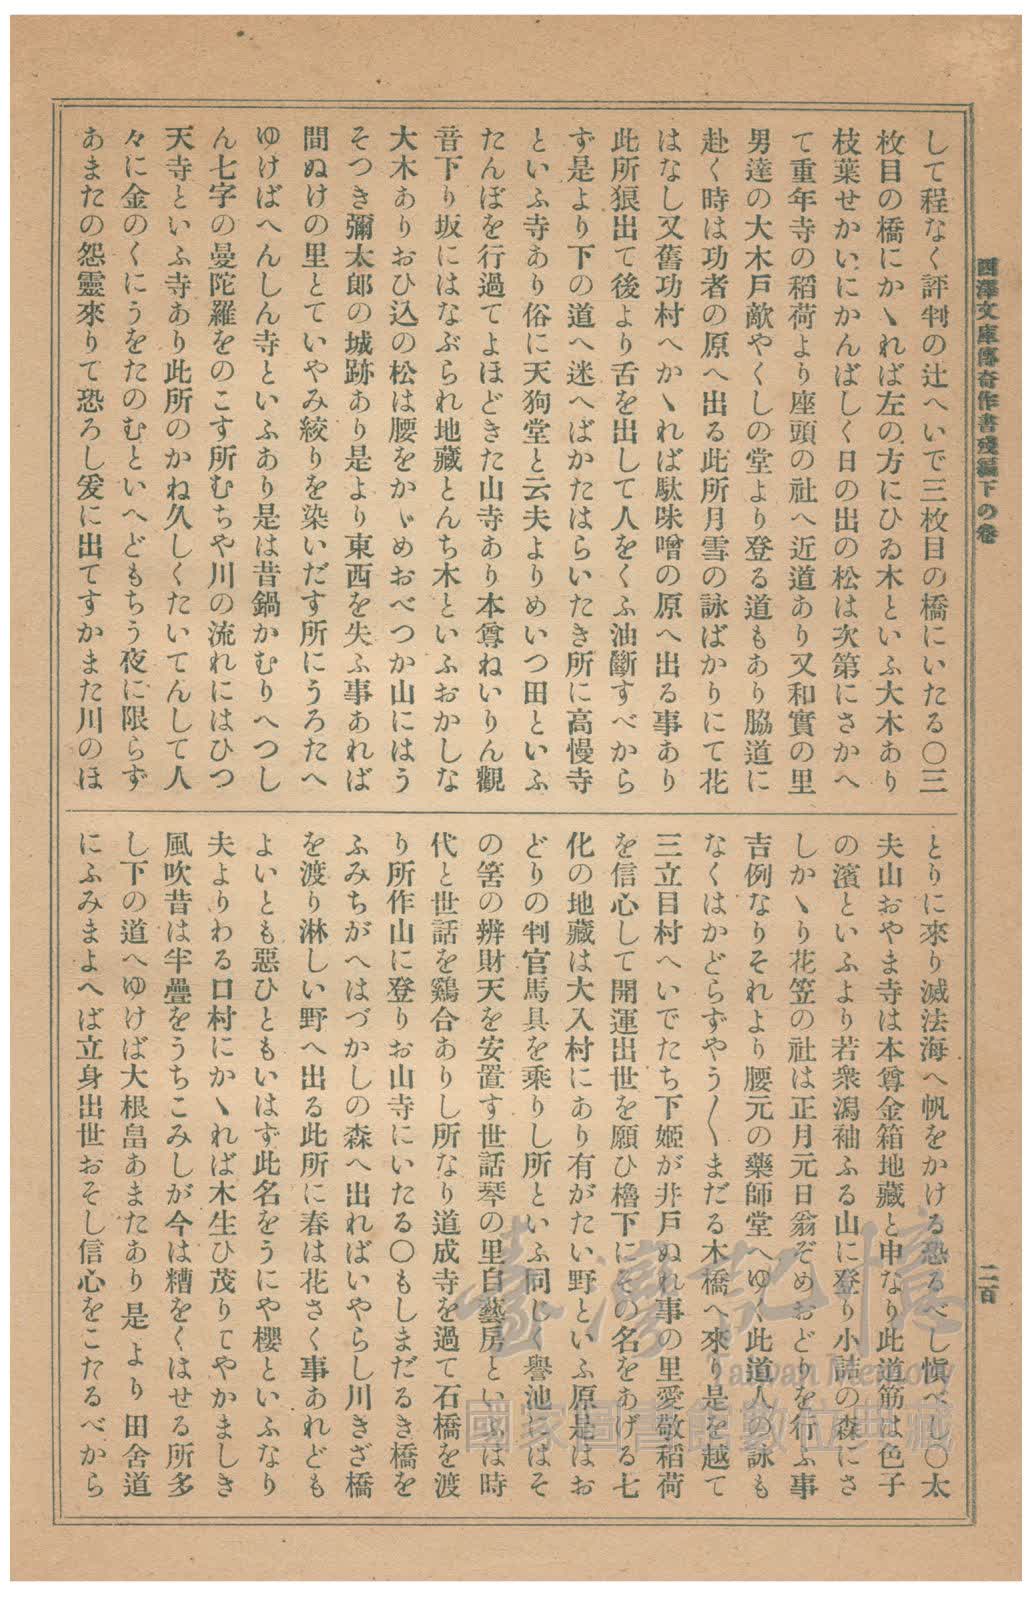 西澤文庫傳奇作書殘編下の卷
二百
して程なく評判の辻へいで三枚目の橋にいたる〇三
枚目の橋にかゝれば左の方にひゐ木といふ大木あり
枝葉せかいにかんばしく日の出の松は次第にさかへ
て重年寺の稻荷より座頭の社へ近道あり又和實の里
男達の大木戸敵やくしの堂より登る道もあり脇道に
赴く時は功者の原へ出る此所月雪の詠ばかりにて花
はなし又舊功村へかゝれば駄味噌の原へ出る事あり
此所狼出て後より舌を出して人をくふ油斷すべから
ず是より下の道へ迷へばかたはらいたき所に高慢寺
といふ寺あり俗に天狗堂と云夫よりめいつ田といふ
たんぼを行過てよほどきた山寺あり本尊ねいりん觀
音下り坂にはなぶられ地藏とんち木といふおかしな
大木ありおひ込の松は腰をかゞめおべつか山にはう
そつき彌太郎の城跡あり是より東西を失ふ事あれば
間ぬけの里とていやみ絞りを染いだす所にうろたへ
ゆけばへんしん寺といふあり是は昔鍋かむりへつし
ん七字の曼陀羅をのこす所むちや川の流れにはひつ
天寺といふ寺あり此所のかね久しくたいてんして人
々に金のくにうをたのむといへどもちう夜に限らず
あまたの怨靈來りて恐ろし爰に出てすかまた川のほ
とりに來り滅法海へ帆をかける恐るべし愼べし〇太
夫山おやま寺は本尊金箱地藏と申なり此道筋は色子
の濱といふより若衆潟袖ふる山に登り小詰の森にさ
しかゝり花笠の社は正月元日翁ぞめおどりを行ふ事
吉例なりそれより腰元の藥師堂へゆく此道人の詠も
なくはかどらずやう〳〵まだる木橋へ來り是を越て
三立目村へいでたち下姬が井戸ぬれ事の里愛敬稻荷
を信心して開運出世を願ひ櫓下にその名をあげる七
化の地藏は大入村にあり有がたい野といふ原是はお
どりの判官馬具を乘りし所といふ同じく譽池にはそ
の筈の辨財天を安置す世話琴の里白藝房といふは時
代と世話を鷄合ありし所なり道成寺を過て石橋を渡
り所作山に登りお山寺にいたる〇もしまだるき橋を
ふみちがへはづかしの森へ出ればいやらし川きざ橋
を渡り淋しい野へ出る此所に春は花さく事あれども
よいとも惡ひともいはず此名をうにや櫻といふなり
夫よりわる口村にかゝれば木生ひ茂りてやかましき
風吹昔は半疊をうちこみしが今は糟をくはせる所多
し下の道へゆけば大根畠あまたあり是より田舍道
にふみまよへば立身出世おそし信心をこたるべから
臺灣記憶
Taiwan Memory
國家圖書館數位典藏